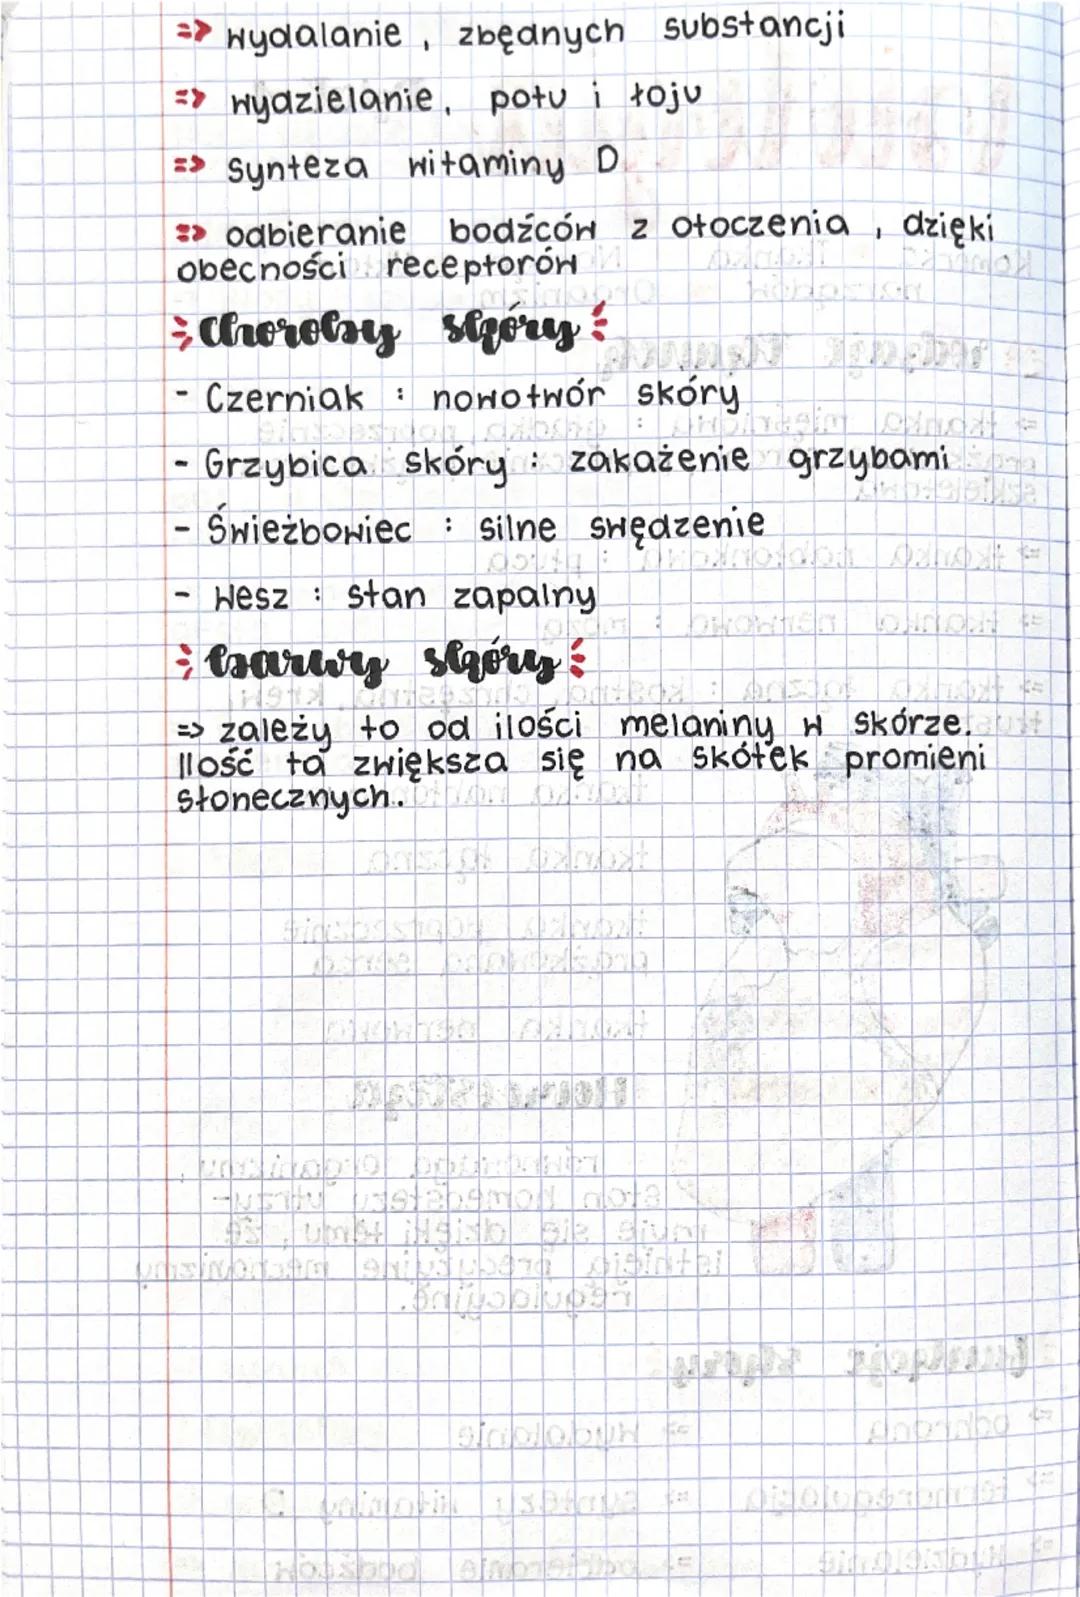 => wydalanie, zbędnych substancji
=> wydzielanie, potu i łoju
=> synteza witaminy D
=> odbieranie bodźców z otoczenia, dzięki
obecności receptorów
Choroby skóry
- Czerniak : nowotwór skóry
- Grzybica skóry : zakażenie grzybami
- Świeżbowiec : silne swędzenie
- Wesz : stan zapalny
barwy skóry
=> zależy to od ilości melaniny w skórze.
Ilość ta zwiększa się na skótek promieni
słonecznych.